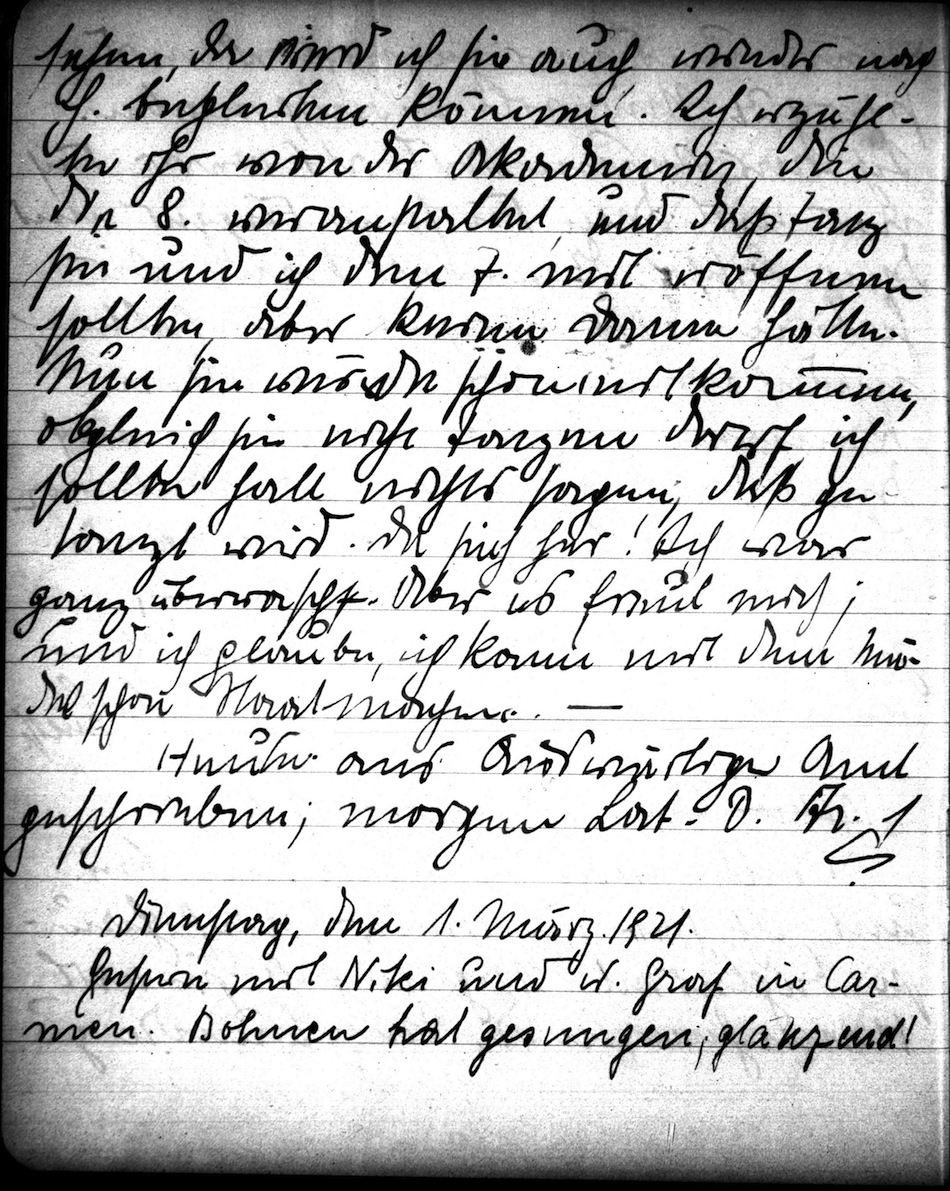 sehen, da wird ich sie auch wieder nach
H. begleiten können. Ich erzähl-
te ihr von der Akademie, die
die 8. veranstaltet und daß
sie und ich den 7. mit eröffnen
sollten, aber keine Dame hätte.
Nun sie würde schon mitkommen,
obgleich sie nicht tanzen darf ich
sollte halt nichts sagen, daß ge
tanzt wird. Da sieh her! Ich war
ganz überrascht. Aber es freut mich;
und ich glaube, ich kann mit dem Mä-
del schon Staat machen. —
Heute ans Auswärtige Amt
geschrieben; morgen Lat.
Dienstag, den 1. März. 1921.
Gestern mit Niki und v. Graf in Car-
men. Bohnen hat gesungen, glänzend!